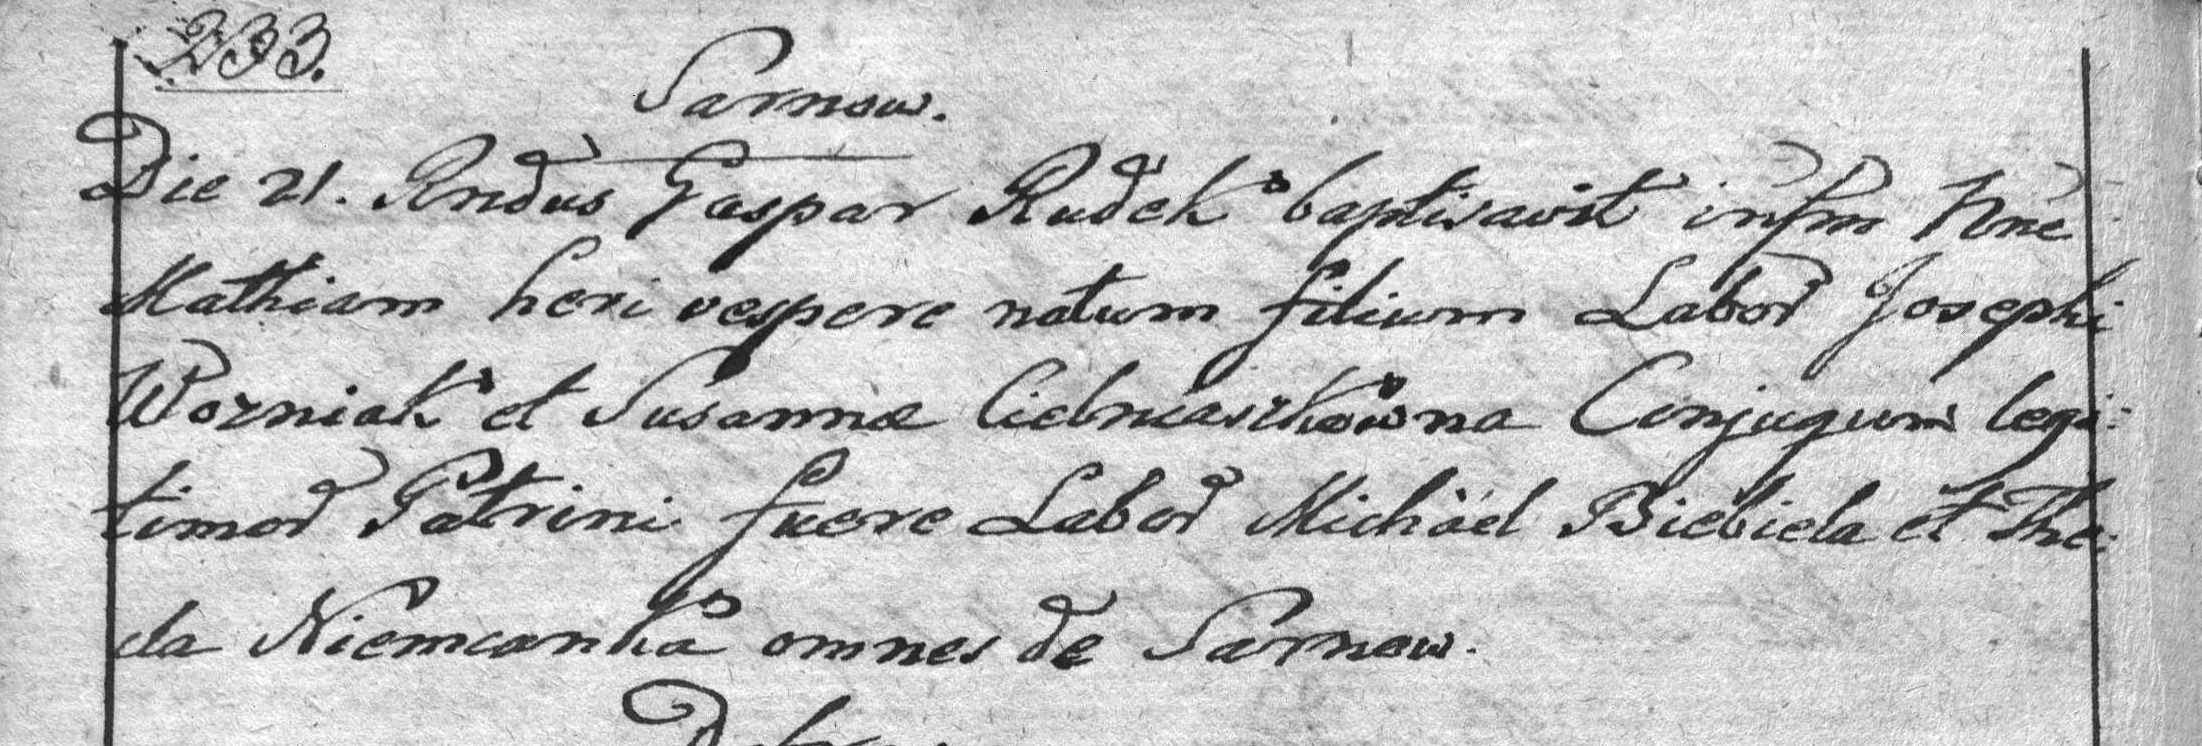 233.
Sarnow.
Die 21. Rndus Gaspar Rudek baptisavit infm Nne
Mathiam heri vespere natum filium Labor Josephi
Wozniak et Susanna Cielniaszkowna Conjugum legi:
timor Patrini fuere Labor Michäel Biebiela et The:
cla Niemcanka omnes de Sarnow.